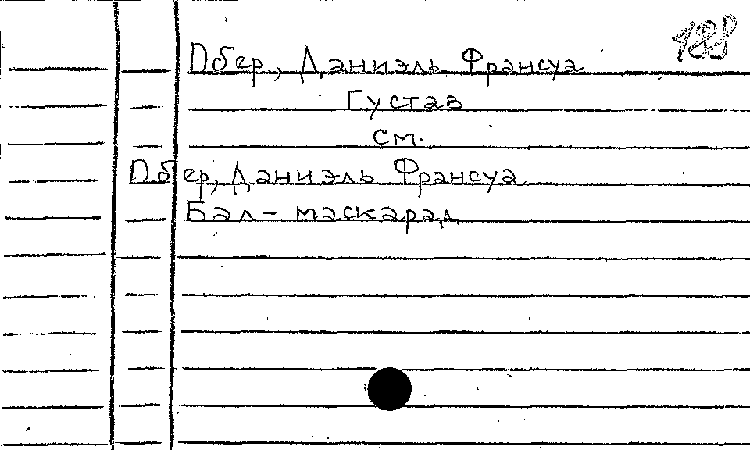 188
Обер, Даниэль Франсуа
Густав
см.
Обер, Даниэль Франсуа
Бал - маскарад